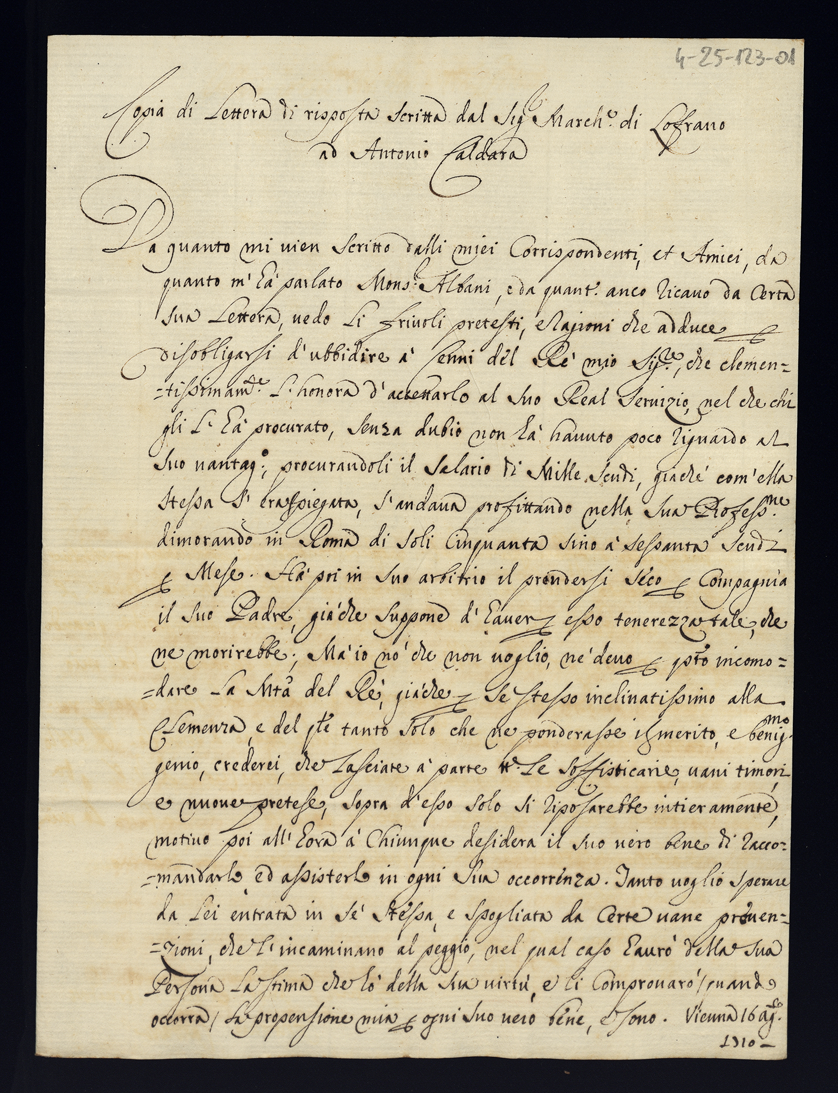 4-25-123-01
Copia di Lettera di risposta scritta dal Sigr. Marche. di Lofrano
ad Antonio Caldara
Da quanto mi vien scritto dalli miei Corrispondenti, et Amici, da
quanto m'hà parlato Monsr. Albani, e da quant. anco ricavo da Certa
sua Lettera, vedo li frivoli pretesti, e ragioni che adduce p
disobligarsi d'ubbidire a' Cenni del Rè mio Sigre., che clemen=
=tissimamte. L'honora d'accettarlo al suo Real Servizio, nel che chi
gli L'hà procurato, senza dubio non hà havuto poco riguardo al
suo vantago., procurandoli il salario di Mille scudi, giaché com'ella
stessa s'era spiegata, s'andava profittando nella sua Professne.
dimorando in Roma di soli Cinquanta sino à sessanta scudi
p Mese. Hà poi in suo arbitrio il prendersi séco p Compagnia
il suo Padre, giàche suppone d'haver p esso tenerezza tale, che
ne morirebbe; Mà io nò che non voglio, né devo p qsto incomo=
=dare La Mtà del Rè, giàche p se stesso inclinatissimo alla
Clemenza, e del qle tanto solo che ne ponderasse il merito, e benigmo.
genio, crederei, che lasciate à parte tte Le soffisticarie, vani timori,
e nuove pretese, sopra d'esso solo si riposarebbe intieramente,
motivo poi all'hora à Chiunque desidera il suo vero bene di racco=
=mandarle ed assisterle in ogni sua occorrenza. Tanto voglio sperare
da Lei entrata in sé stessa, e spogliata da Certe vane preven=
=zioni, che l'incaminano al peggio, nel qual caso haurò della sua
Persona la stima che hò della sua virtù, e li Comprovarò /quando
occorra/ la propensione mia p ogni suo vero bene, e sono. Vienna 16 Agto.
1710=